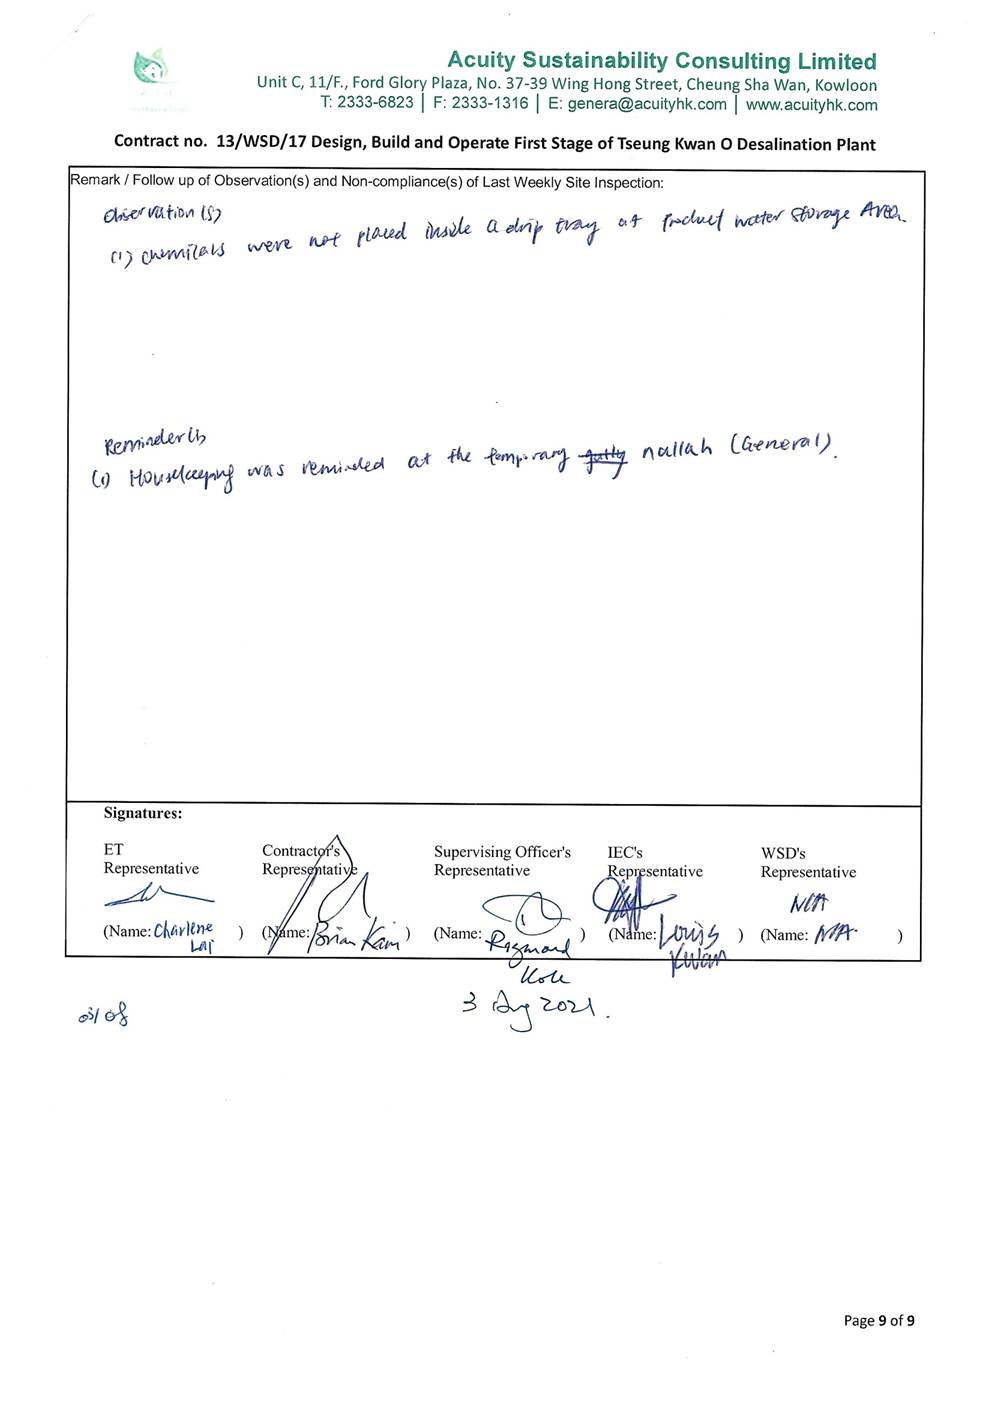 Acuity Sustainability Consulting Limited
Unit C, 11/F., Ford Glory Plaza, No. 37-39 Wing Hong Street, Cheung Sha Wan, Kowloon
T: 2333-6823 | F: 2333-1316 | E: genera@acuityhk.com | www.acuityhk.com
Contract no. 13/WSD/17 Design, Build and Operate First Stage of Tseung Kwan O Desalination Plant
Remark / Follow up of Observation(s) and Non-compliance(s) of Last Weekly Site Inspection:
Observation(s)
(1) Chemicals were not placed inside a drip tray at Product water Storage Area.
Reminder(s)
(1) Housekeeping was reminded at the temporary nallah (General).
Signatures:
ET Representative
Contractor's Representative
Supervising Officer's Representative
IEC's Representative
WSD's Representative
N/A
(Name: Charlene Lai)
(Name: Brian Kam)
(Name: Raymond)
(Name: Louis Kwan)
(Name: N/A)
3 Aug 2021.
03/08
Page 9 of 9